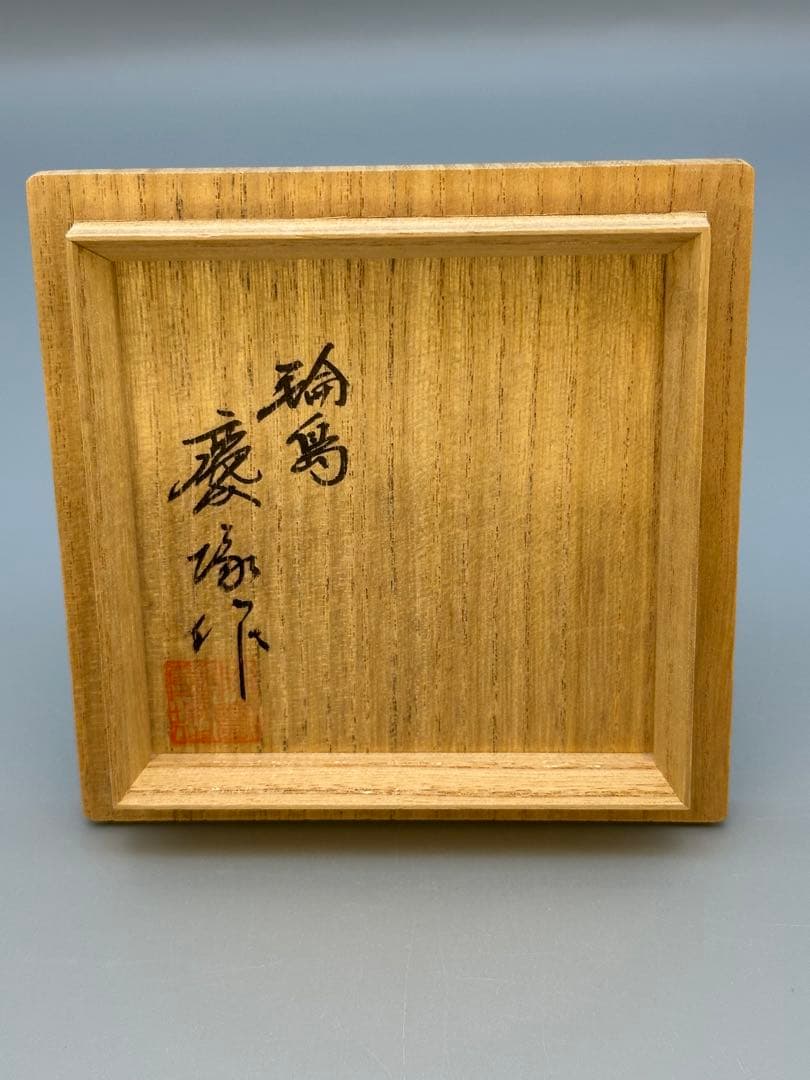 輪島
慶塚作